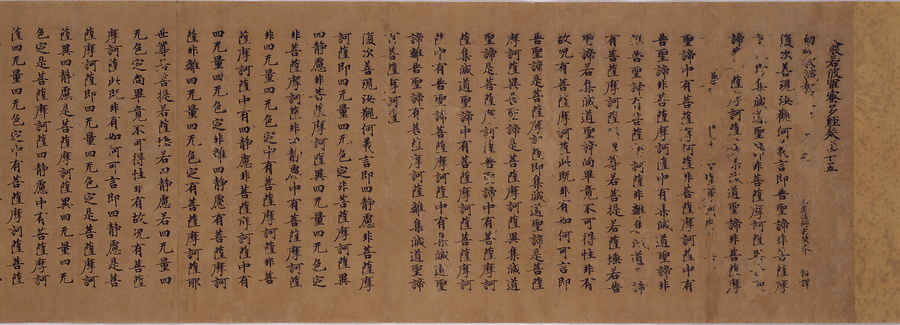 般若波羅蜜多經卷第十五
初分教誡教
三藏法師玄奘奉 詔譯
復次善現汝觀何義言即苦聖諦非菩薩摩
集滅道聖諦非菩薩摩訶薩異苦
諦 薩摩訶薩異集滅道聖諦非菩薩摩
聖諦中有菩薩摩訶薩非菩薩摩訶薩中有
苦聖諦非菩薩摩訶薩中有集滅道聖諦非
離苦聖諦有菩薩摩訶薩非離集滅道聖諦
有菩薩摩訶薩耶世尊若菩提若薩埵若苦
聖諦若集滅道聖諦尚畢竟不可得性非有
故況有菩薩摩訶薩此既非有如何可言即
苦聖諦是菩薩摩訶薩即集滅道聖諦是菩薩
摩訶薩異苦聖諦是菩薩摩訶薩異集滅道
聖諦是菩薩摩訶薩苦聖諦中有菩薩摩訶
薩集滅道聖諦中有菩薩摩訶薩菩薩摩訶薩
中有苦聖諦菩薩摩訶薩中有集滅道聖
諦離苦聖諦有菩薩摩訶薩離集滅道聖諦
有菩薩摩訶薩
復次善現汝觀何義言即四靜慮非菩薩摩
訶薩即四无量四无色定非菩薩摩訶薩異
四靜慮非菩薩摩訶薩異四无量四无色定
非菩薩摩訶薩非四靜慮中有菩薩摩訶薩
非四无量四无色定中有菩薩摩訶薩非菩
薩摩訶薩中有四靜慮非菩薩摩訶薩中有
四无量四无色定非離四靜慮有菩薩摩訶
薩非離四无量四无色定有菩薩摩訶薩耶
世尊若菩提若薩埵若四靜慮若四无量四
无色定尚畢竟不可得性非有故況有菩薩
摩訶薩此既非有如何可言即四靜慮是菩
薩摩訶薩即四无量四无色定是菩薩摩訶
薩異四靜慮是菩薩摩訶薩異四无量四无
色定是菩薩摩訶薩四靜慮中有菩薩摩訶
薩四无量四无色定中有菩薩摩訶薩菩薩